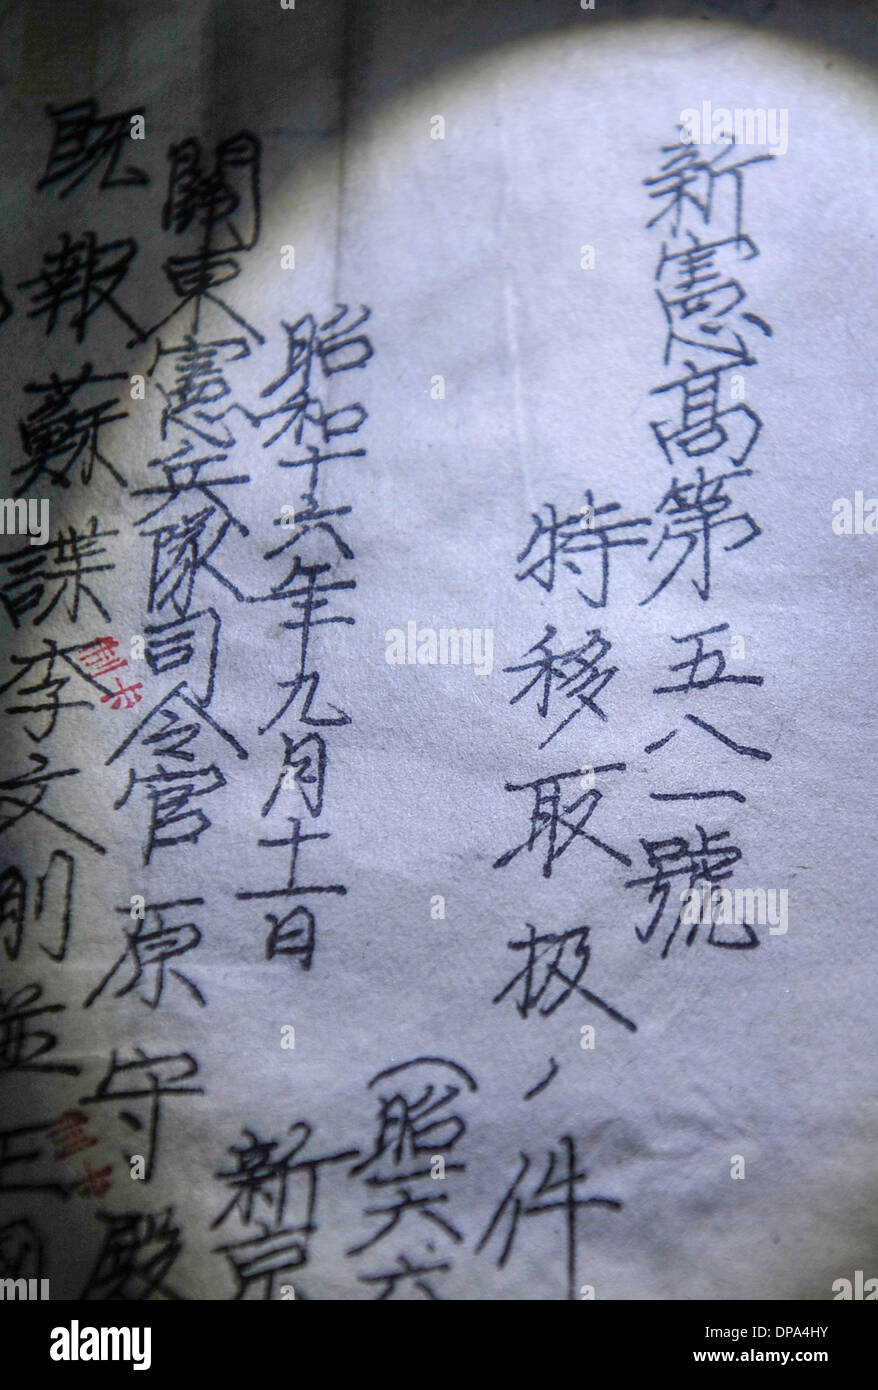 新憲高第五八一號
特移取扱ノ件
(昭一六、六
昭和十六年九月十一日
新京
關東憲兵隊司令官原守殿
既報蘇諜李文剛並王國
alamy
Image ID: DPA4HY
www.alamy.com